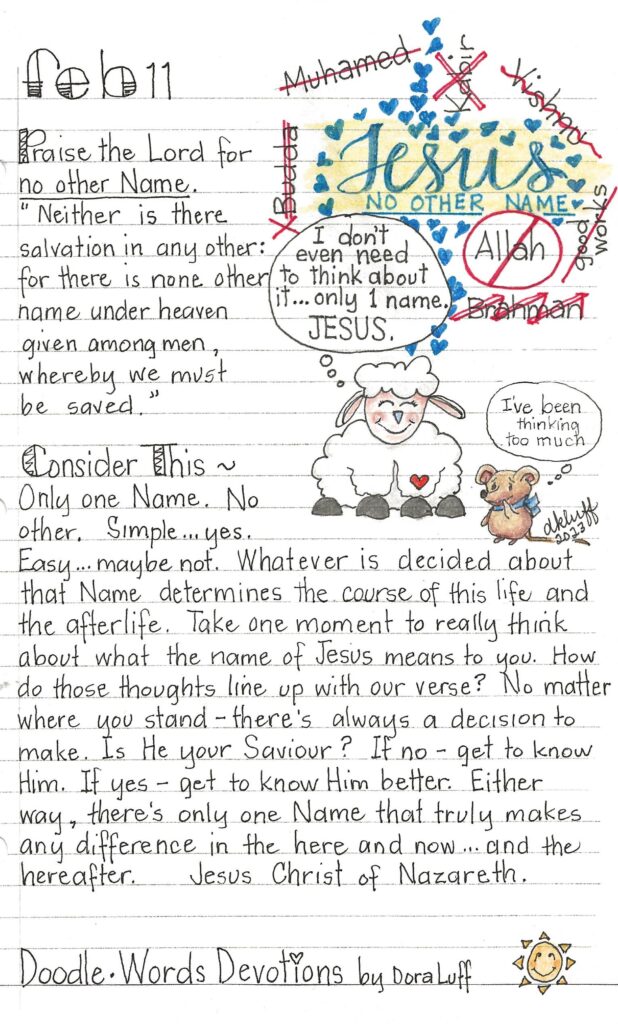 feb 11
Muhamed
Kabir
Vishnu
Budda
Jesus
NO OTHER NAME
Allah
good
works
Brahman
Praise the Lord for
no other Name.
"Neither is there
salvation in any other:
for there is none other
name under heaven
given among men,
whereby we must
be saved."
I don't
even need
to think about
it...only 1 name.
JESUS.
I've been
thinking
too much
dkluff
2023
Consider This ~
Only one Name. No
other. Simple...yes.
Easy...maybe not. Whatever is decided about
that Name determines the course of this life and
the afterlife. Take one moment to really think
about what the name of Jesus means to you. How
do those thoughts line up with our verse? No matter
where you stand - there's always a decision to
make. Is He your Saviour? If no - get to know
Him. If yes - get to know Him better. Either
way, there's only one Name that truly makes
any difference in the here and now...and the
hereafter. Jesus Christ of Nazareth.
Doodle.Words Devotions by Dora Luff